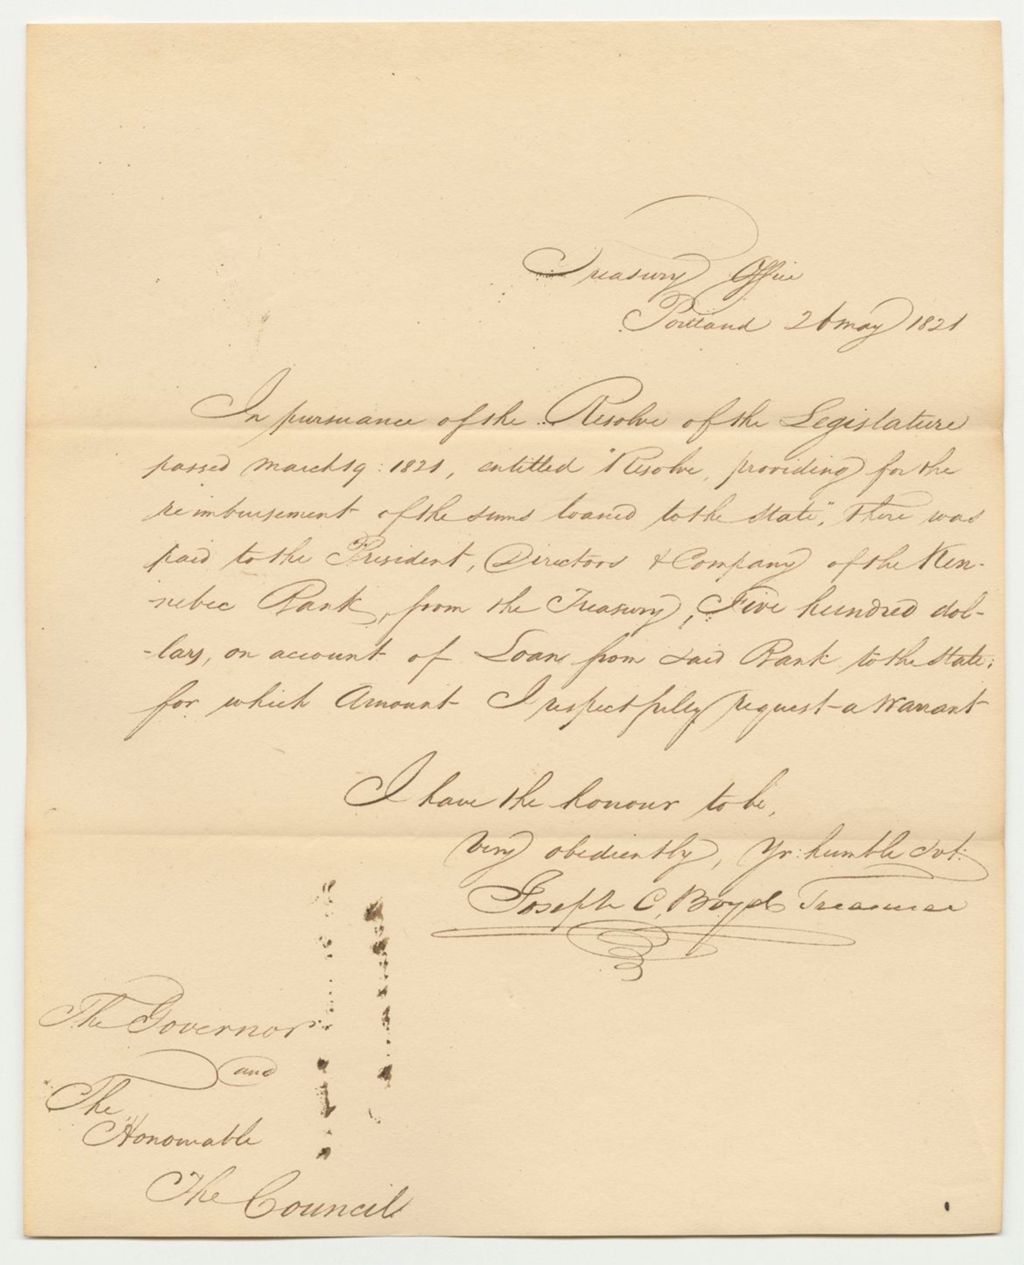 Treasury Office
Portland 26 may 1821
In pursuance of the Resolve of the Legislature
passed march 19: 1821, entitled "Resolve, providing for the
reimbursement of the sums loaned to the state", there was
paid to the President, Directors & Company of the Ken-
nebec Bank, from the Treasury, Five hundred dol-
-lars, on account of Loan from said Bank to the state;
for which Amount I respectfully request a Warrant
I have the honour to be,
very obediently, Yr: humble Svt:
Joseph C. Boyd Treasurer
The Governor
and
The
Honourable
The Council